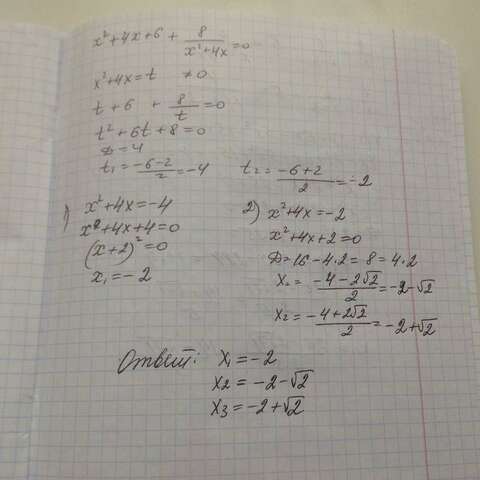 x² + 4x + 6 + 8/(x² + 4x) = 0
x² + 4x = t ≠ 0
t + 6 + 8/t = 0
t² + 6t + 8 = 0
D = 4
t₁ = (-6-2)/2 = -4 t₂ = (-6+2)/2 = -2
1) x² + 4x = -4
x² + 4x + 4 = 0
(x + 2)² = 0
x₁ = -2
2) x² + 4x = -2
x² + 4x + 2 = 0
D = 16 - 4·2 = 8 = 4·2
x₁ = (-4 - 2√2)/2 = -2 - √2
x₂ = (-4 + 2√2)/2 = -2 + √2
Ответ: x₁ = -2
x₂ = -2 - √2
x₃ = -2 + √2